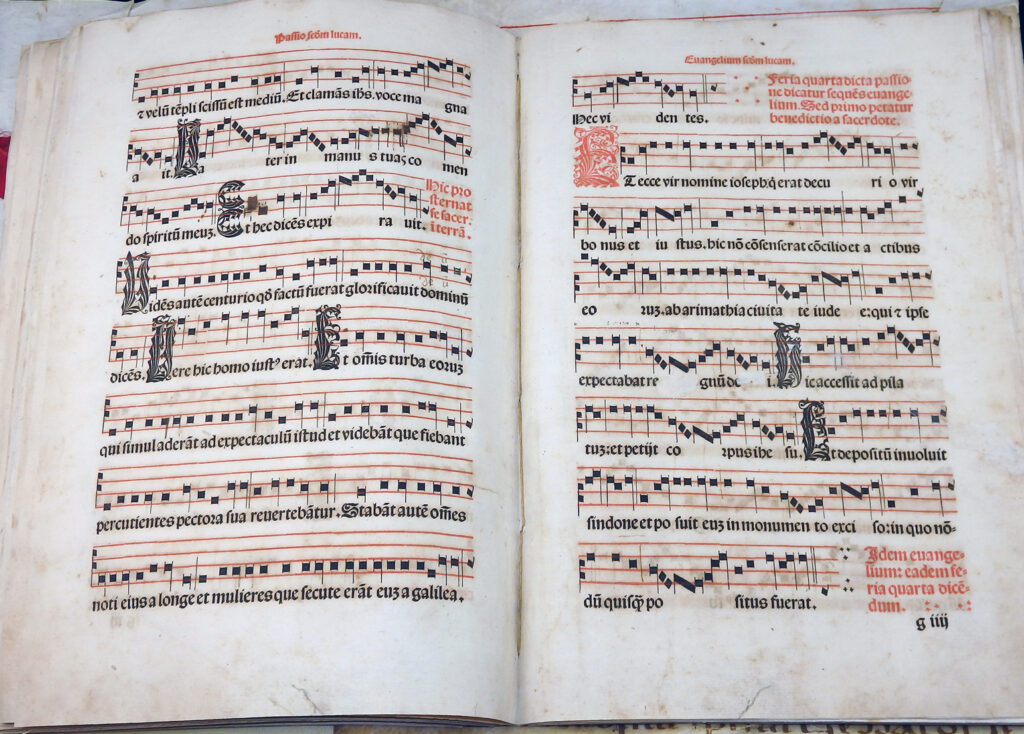 Passio scḋm lucam.
⁊ velū tēpli scissū est mediū. Et clamās ih̄s. voce ma gna
a it. Pa ter in manu s tuas co men
do spiritū meuꝫ. Et hec dicēs expi ra uit.
Hic pro
sternat
se sacer.
ī terrā.
Uidēs autē centurio qḋ factū fuerat glorificauit dominū
dicēs. Uere hic homo iustꝰ erat. Et om̄is turba eoruꝫ
qui simul aderāt ad expectaculū istud et videbāt que fiebant
percutientes pectora sua reuertebātur. Stabāt autē om̄es
noti eius a longe et mulieres que secute erāt euꝫ a galilea.
Euangelium scḋm lucam.
Hec vi den tes.
Feria quarta dicta passio-
ne dicatur sequēs euange-
lium. Sed primo petatur
benedictio a sacerdote.
Et ecce vir nomine ioseph: q̇ erat decu ri o vir
bo nus et iu stus. hic nō cōsenserat cōcilio et a ctibus
eo ruꝫ. ab arimathia ciuita te iude e: qui ⁊ ipse
expectabat re gnū de i. Hic accessit ad pila
tuꝫ: et petijt co rpus ihe su. Et depositū inuoluit
sindone et po suit euꝫ in monumen to exci so: in quo nō-
dū quisq̄ꝫ po situs fuerat.
Idem euange-
lium: eadem fe-
ria quarta dicē-
dum.
g iiij